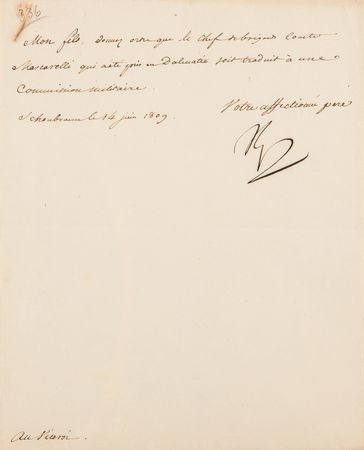 336
Mon fils, donnez ordre que le Chef de brigans Comte
Mascarelli qui a été pris en Dalmatie soit traduit à une
Commission militaire.
Schonbrunn le 14 juin 1809
Votre affectionné pere
Au Viceroi.